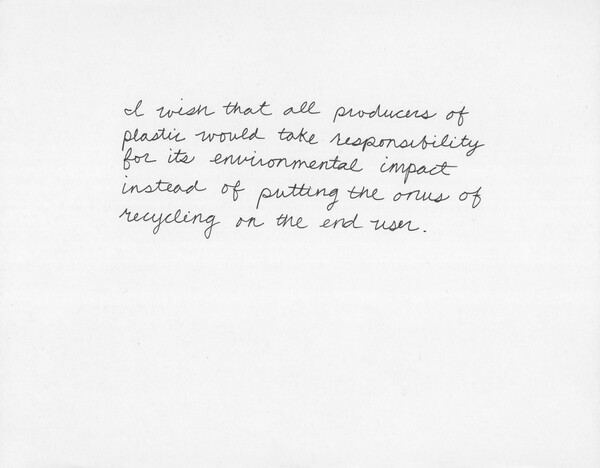 I wish that all producers of
plastic would take responsibility
for its environmental impact
instead of putting the onus of
recycling on the end user.